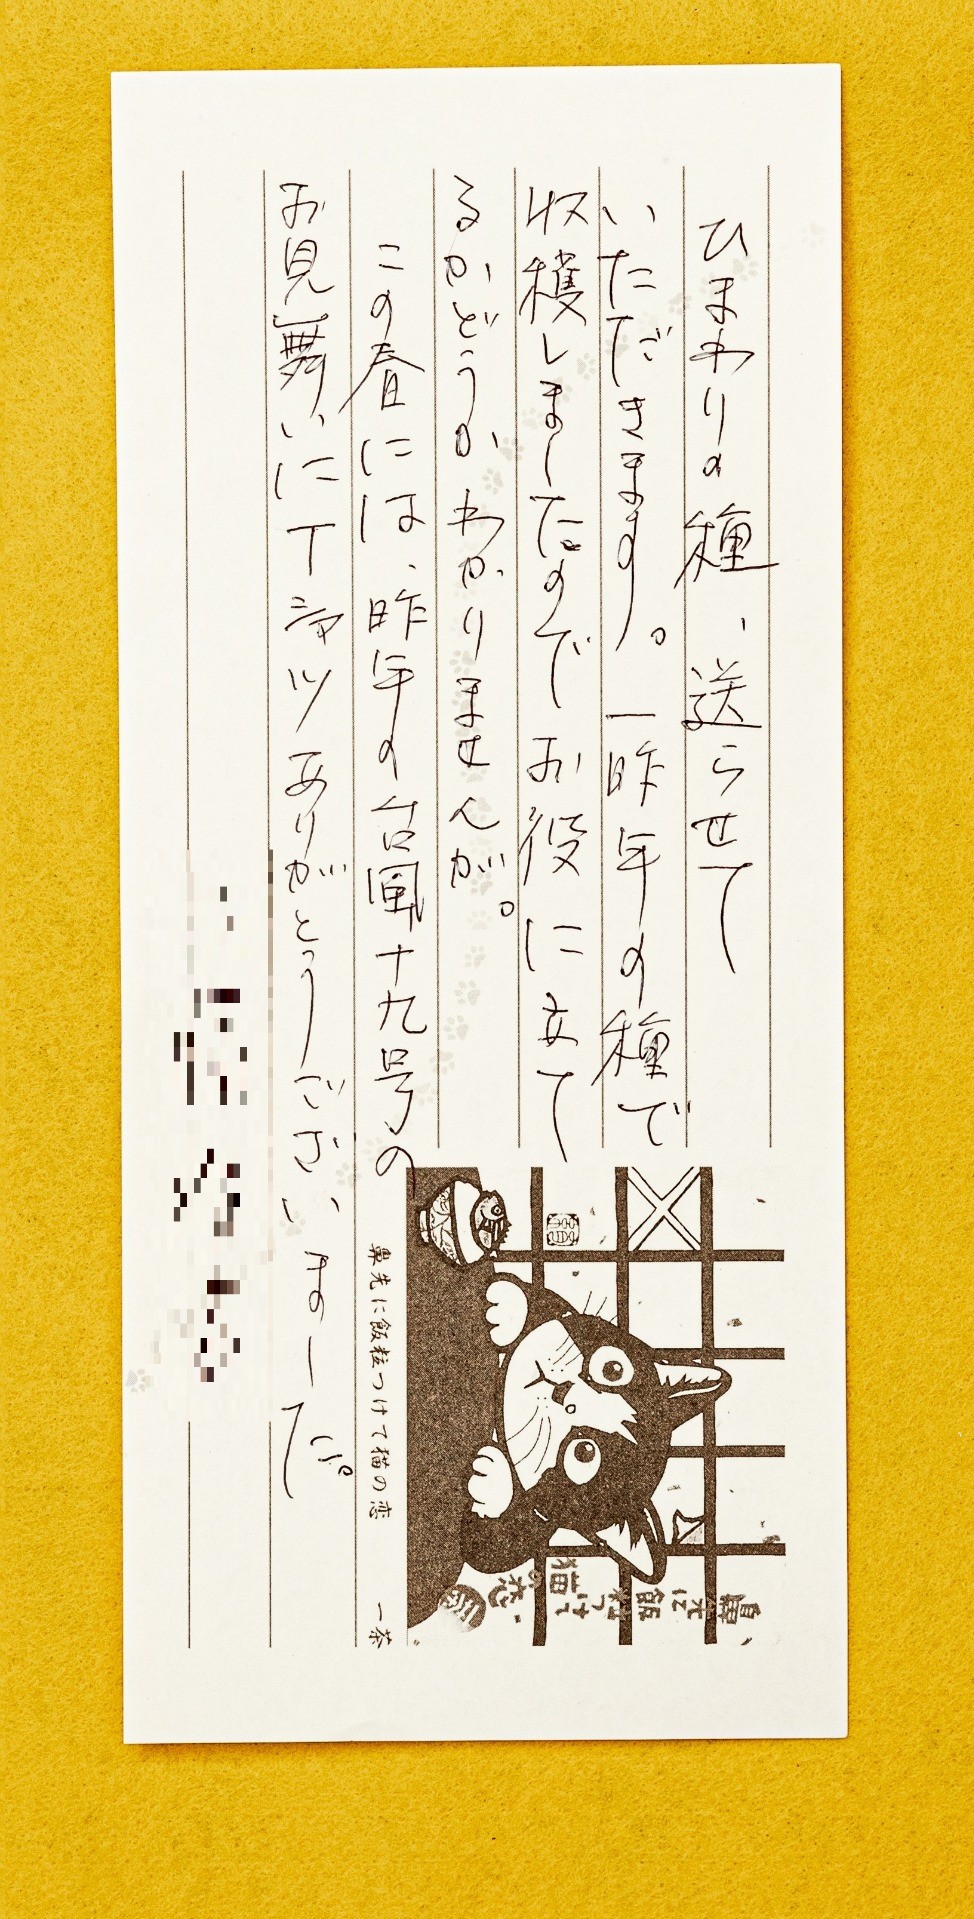 ひまわりの種、送らせて
いただきます。一昨年の種で
収穫しましたのでお役に立て
るかどうかわかりませんが。
この春には、昨年の台風十九号の
お見舞いにTシャツありがとうございました。
鼻先に飯粒つけて猫の恋 一茶
鼻先に
飯粒つけて
猫の恋